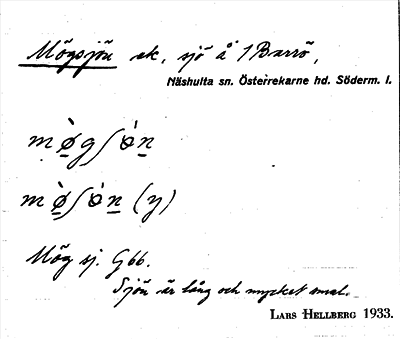 Mögsjön ek, sjö å 1 Barrö,
Näshulta sn. Österrekarne hd. Söderm. l.
mø̀gʃón
mø̀ʃón (y)
Mög sj. Gbb.
Sjön är lång och mycket smal.
LARS HELLBERG 1933.